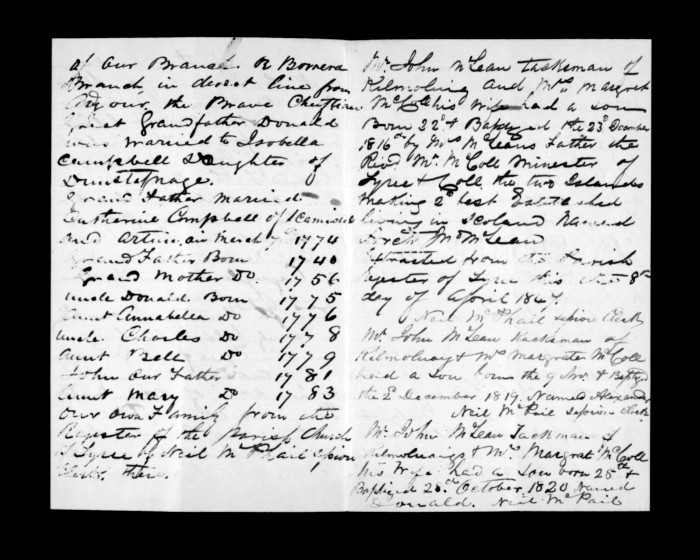 of our Branch. Or Borrera
Branch, in direct line from
our, the Brave Cheiftian
Great Grandfather Donald
was married to Isobella
Campbell Daughter of
Dunstafnage.
Grand Father married
Catherine Campbell of Scamadale
and March 1774
Grand Father Born 1740
Grand Mother Do. 1756
uncle Donald Born 1775
aunt Annabella Do 1776
uncle Charles Do 1778
aunt Bell Do 1779
John Our Father 1781
aunt Mary Do 1783
our own Family from the
Register of the parish Church
of Tyree by Neil McPhail session
Clerk there.
Mr. John McLean tasksman of
Kilmoluag and Mrs Margret
McColl his wife had a son
Born 22d & Baptized the 23d December
1816 by Mrs McLeans Father the
Revd. Mr. McColl Minester of
Tyree & Coll, the two Islands
making 2d best Estate
living in Scoland Named
McLean
Extracted from the Parish
regester of Tyree this 8th
day of April 1847.
Neil McPhail session Clerk
Mr. John McLean Tacksman of
Kilmoluag & Mrs Margrate McColl
had a son born the 9 Nov. & Baptized
the 2 December 1819. Named Alexander
Neil McPail session Clerk.
Mr. John McLean Tackman of
Kilmoluaig & Mrs. Margrat McColl
his Wife had a son born 25th &
Baptized 28th October 1820 Named
Donald. Neil McPail